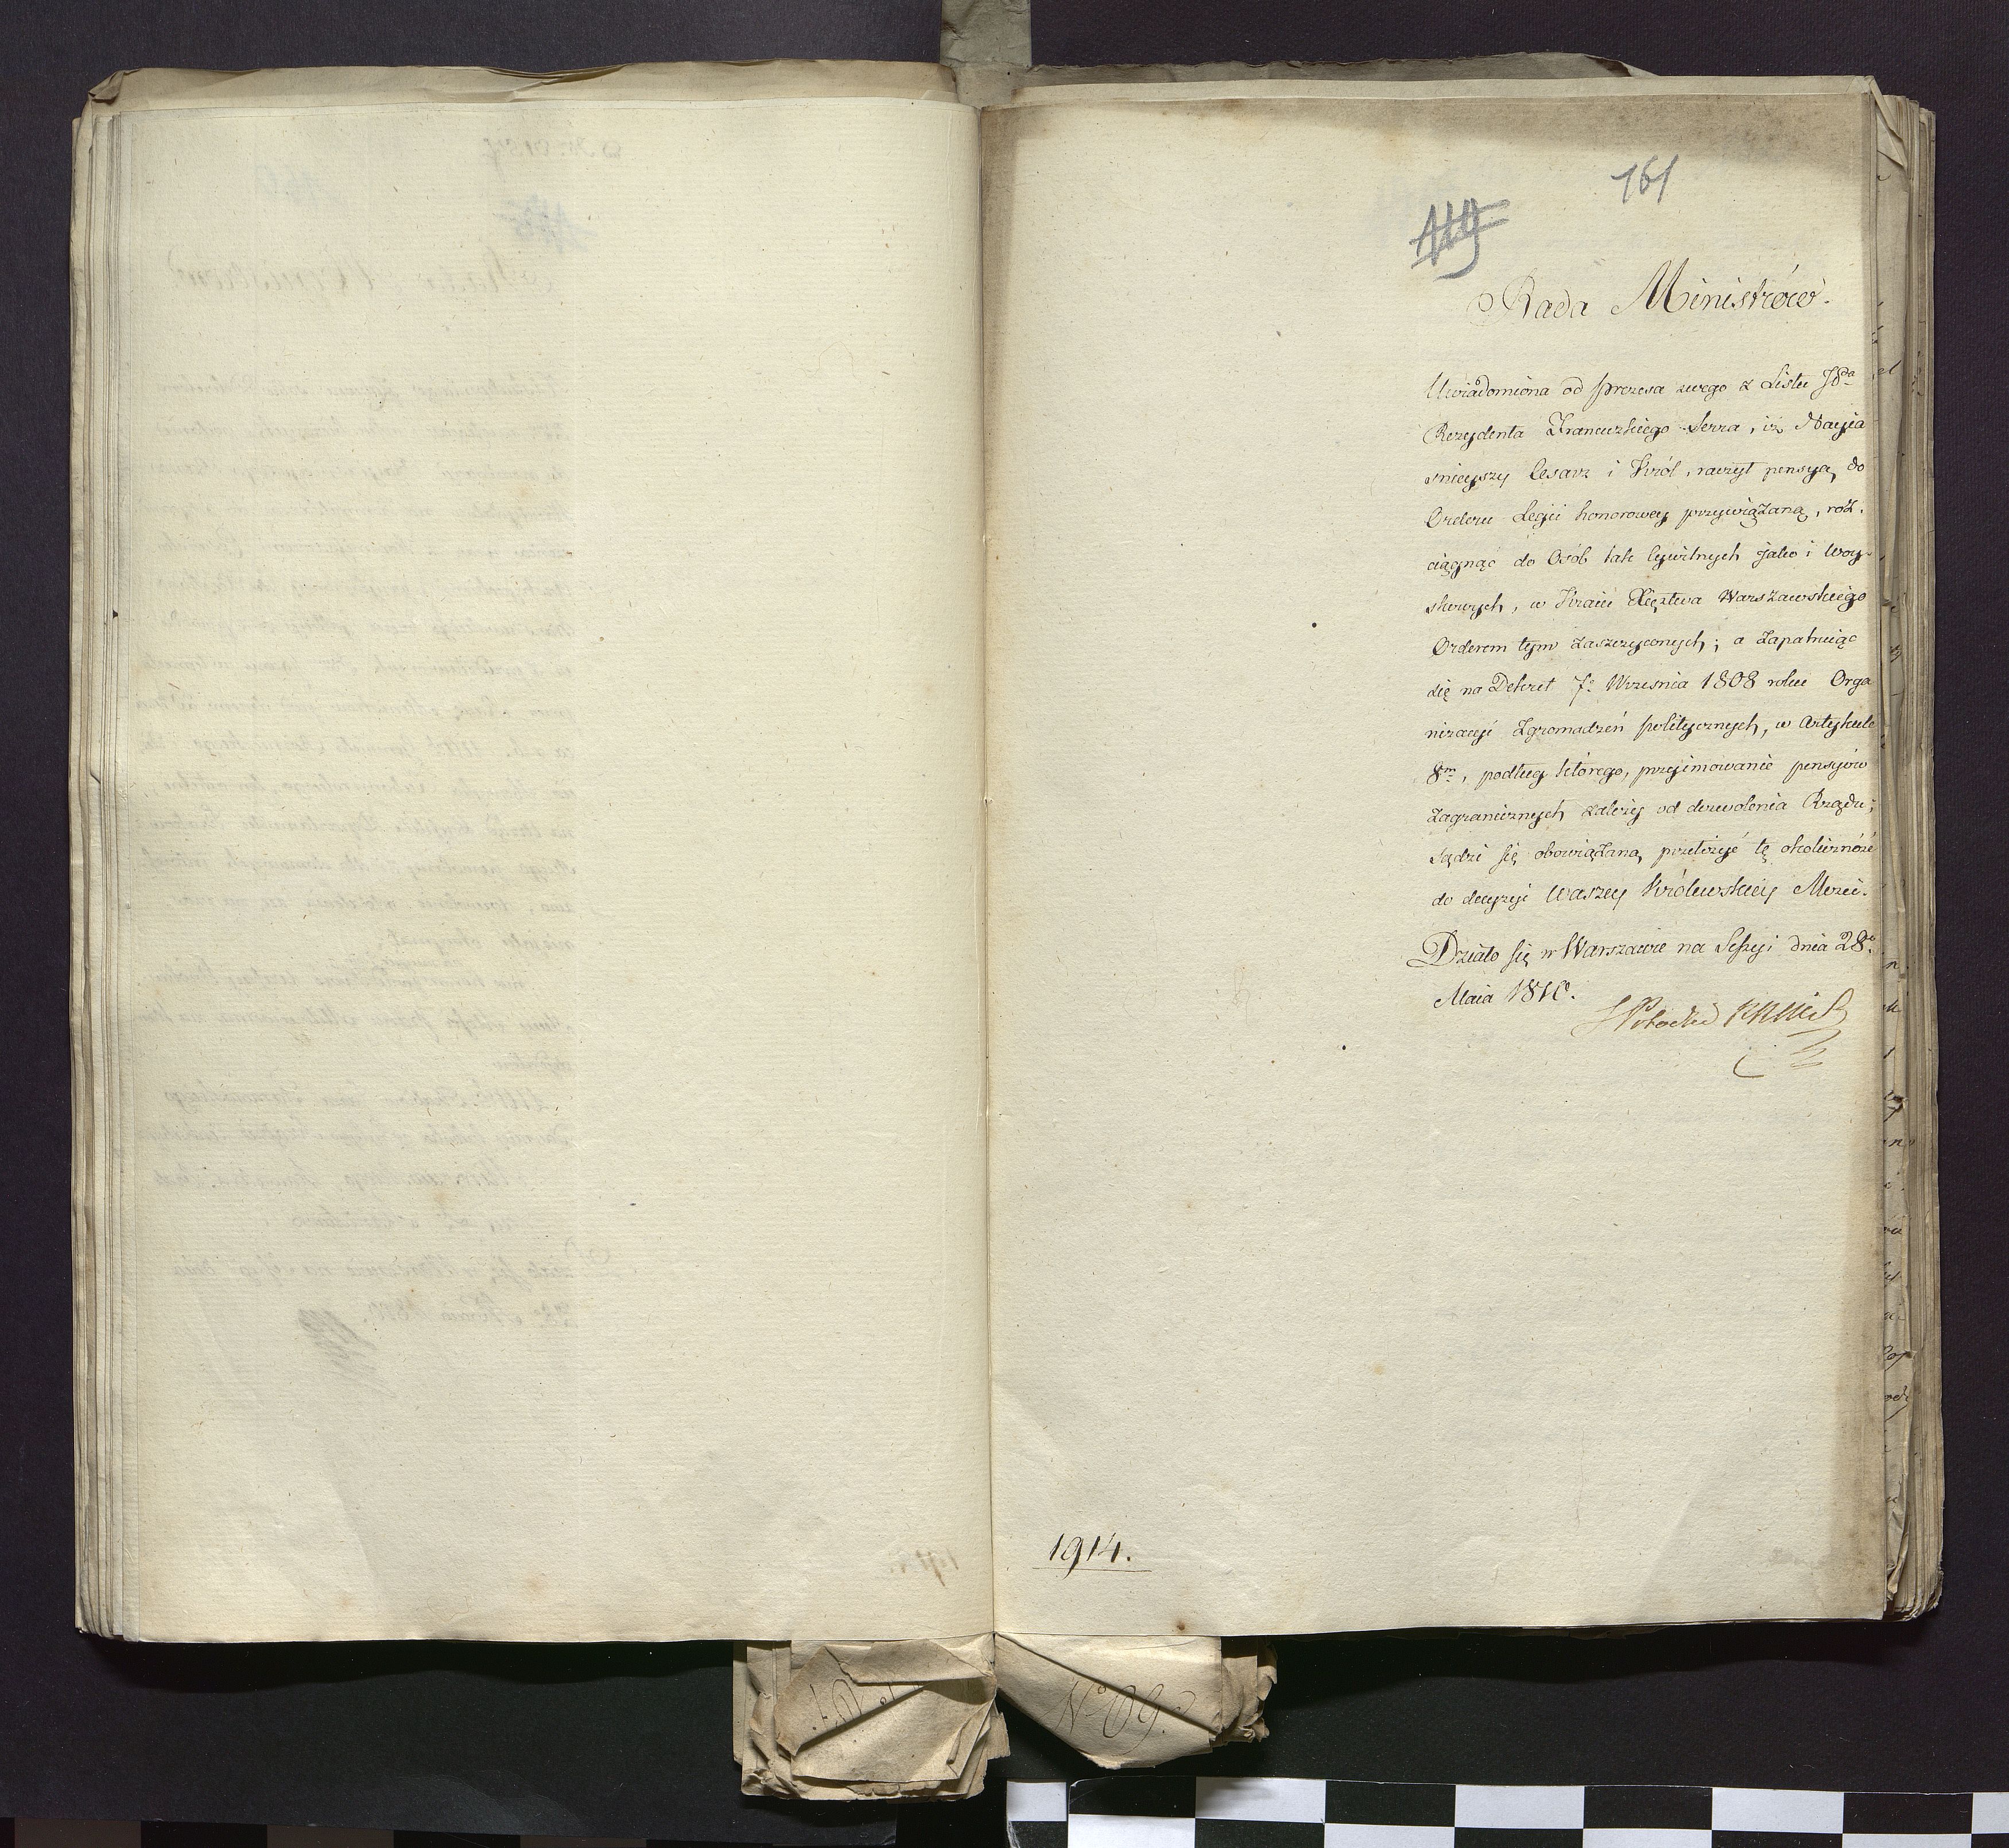 161
119
Rada Ministrów.
Uwiadomiona od prezesa swego z Listu JPa
Rezydenta Francuzkiego Serra, iż Nayia
śnieyszy Cesarz i Król, raczył pensyą do
Orderu Legii honorowey przywiązaną, roz.
ciągnąć do Osób tak Cywilnych jako i Woy-
skowych, w Kraiu Xięztwa Warszawskiego
Orderem tym zaszczyconych; a Zapatruiąc
się na Dekret 7o Wrzesnia 1808 roku Orga
nizacyi Zgromadzeń politycznych, w Artykule
8m, podług którego, przyimowanie pensyów
Zagranicznych zależy od dozwolenia Rządu;
sądzi się obowiązaną, przełożyć tę okoliczność
do decyzyi Waszey Królewskiey Mości.
Działo się w Warszawie na Sessyi dnia 28o
Maia 1810.
SPotocki
1914.
No 09.